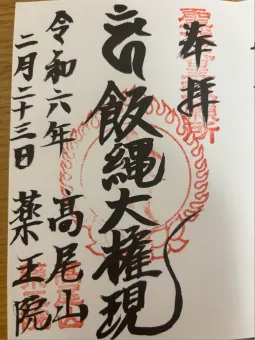 奉拝
飯縄大権現
令和六年 髙尾山
二月二十三日 薬王院